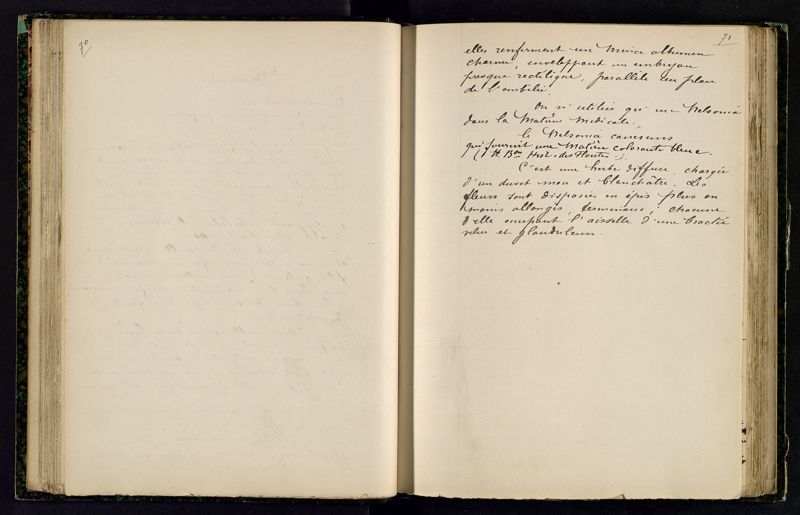 70
71
elles renferment un mince albumen
charnu, enveloppant un embryon
presque rectiligne, parallèle au plan
de l'ombilic.
On n'utilise qu'une Nelsonia
dans la Matière Médicale.
le Nelsonia canescens
qui fournit une Matière colorante bleue.
(H. Bon Hist. des Plantes).
C'est une herbe diffuse, chargée
d'un duvet mou et blanchâtre. Les
fleurs sont disposées en épis plus ou
moins allongés, terminaux; chacune
d'elle occupant l'aisselle d'une bractée
velue et glanduleuse.